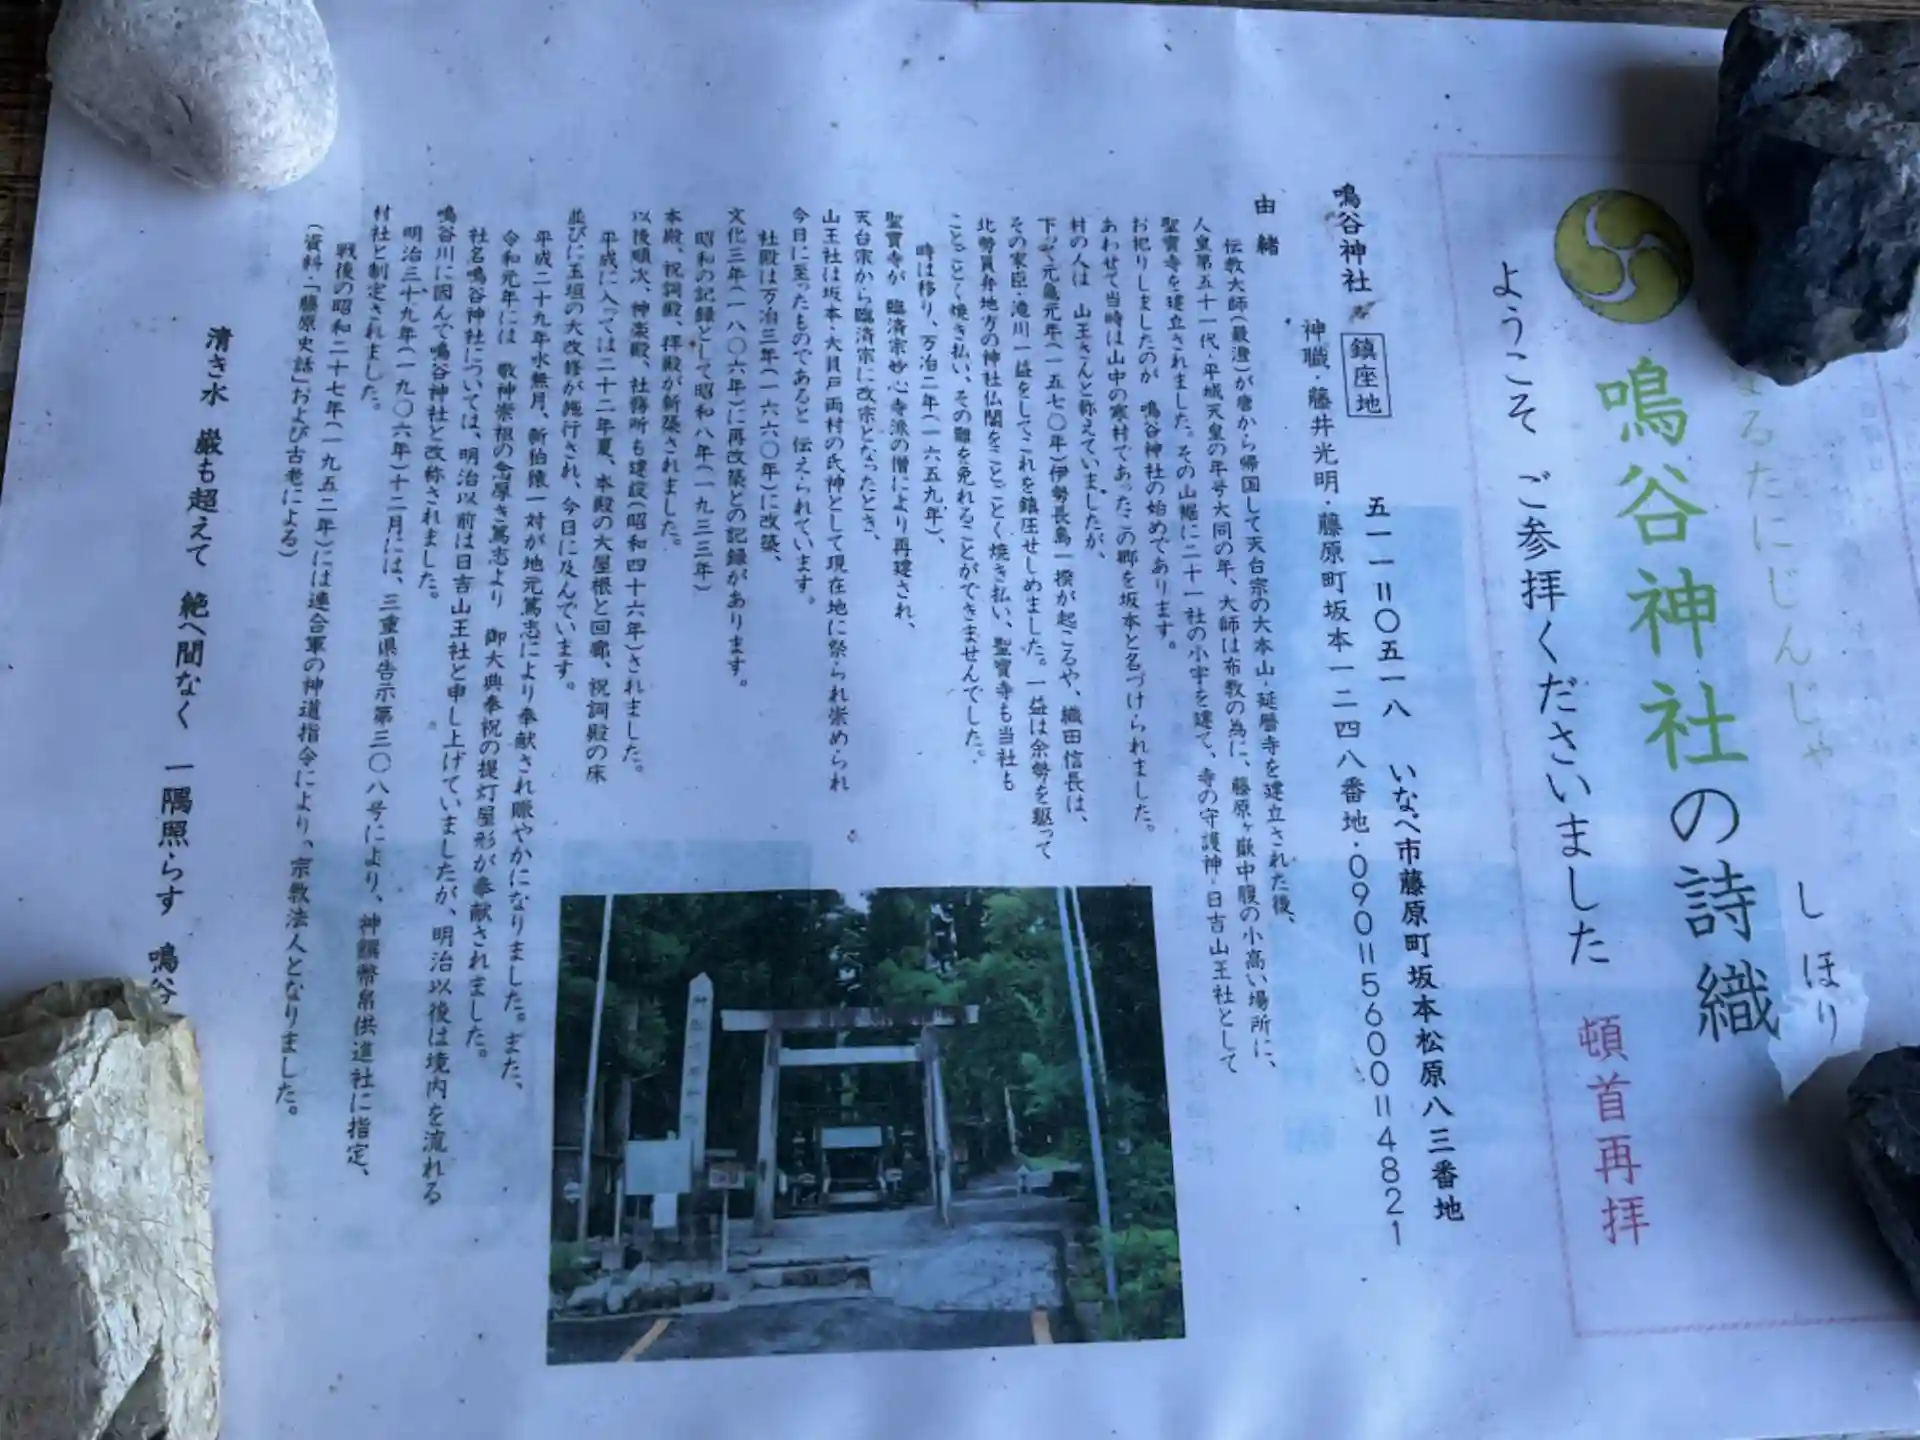 るたにじんじゃ しほり
鳴谷神社の詩織
ようこそ ご参拝くださいました 頓首再拝
鳴谷神社 鎮座地 五一一=〇五一八 いなべ市藤原町坂本松原八三番地
神職・藤井光明・藤原町坂本一二四八番地・090=5600=4821
由緒
伝教大師(最澄)が唐から帰国して天台宗の大本山・延暦寺を建立された後、
人皇第五十一代・平城天皇の年号・大同の年、大師は布教の為に、藤原ヶ嶽中腹の小高い場所に、
聖寳寺を建立されました。その山裾に二十一社の小宇を建て、寺の守護神・日吉山王社として
お祀りしましたのが 鳴谷神社の始めであります。
あわせて当時は山中の寒村であったこの郷を坂本と名づけられました。
村の人は 山王さんと称えていましたが、
下って元亀元年(一五七〇年)伊勢長島一揆が起こるや、織田信長は、
その家臣・滝川一益をしてこれを鎮圧せしめました。一益は余勢を駆って
北勢員弁地方の神社仏閣をことごとく焼き払い、聖寳寺も当社も
ことごとく焼き払い、その難を免れることができませんでした。
時は移り、万治二年(一六五九年)、
聖寳寺が 臨済宗妙心寺派の僧により再建され、
天台宗から臨済宗に改宗となったとき、
山王社は坂本・大貝戸両村の氏神として現在地に祭られ崇められ
今日に至ったものであると 伝えられています。
社殿は万治三年(一六六〇年)に改築、
文化三年(一八〇六年)に再改築との記録があります。
昭和の記録として昭和八年(一九三三年)
本殿、祝詞殿、拝殿が新築されました。
以後順次、神楽殿、社務所も建設(昭和四十六年)されました。
平成に入っては二十二年夏、本殿の大屋根と回廊、祝詞殿の床
並びに玉垣の大改修が施行され、今日に及んでいます。
平成二十九年水無月、新狛犾一対が地元篤志により奉献され賑やかになりました。また、
令和元年には 敬神崇祖の念厚き篤志より 御大典奉祝の提灯屋形が奉献されました。
社名鳴谷神社については、明治以前は日吉山王社と申し上げていましたが、明治以後は境内を流れる
鳴谷川に因んで鳴谷神社と改称されました。
明治三十九年(一九〇六年)十二月には、三重県告示第三〇八号により、神饌幣帛供進社に指定、
村社と制定されました。
戦後の昭和二十七年(一九五二年)には連合軍の神道指令により、宗教法人となりました。
(資料・「藤原史話」および古老による)
清き水 巌も超えて 絶へ間なく 一隅照らす 鳴谷